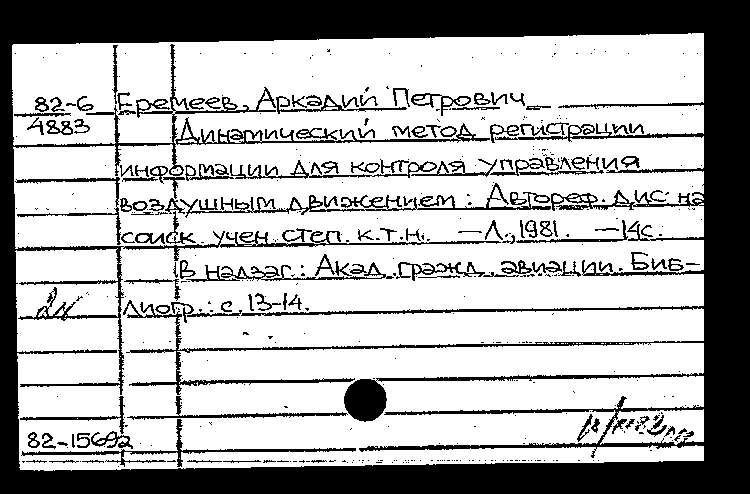 82-6 Еремеев, Аркадий Петрович
4883 Динамический метод регистрации
информации для контроля управления
воздушным движением: Автореф. дис на
соиск. учен. степ. к.т.н. — Л., 1981. — 14с.
В надзаг.: Акад. гражд. авиации. Биб-
лиогр.: с. 13-14.
82-15692